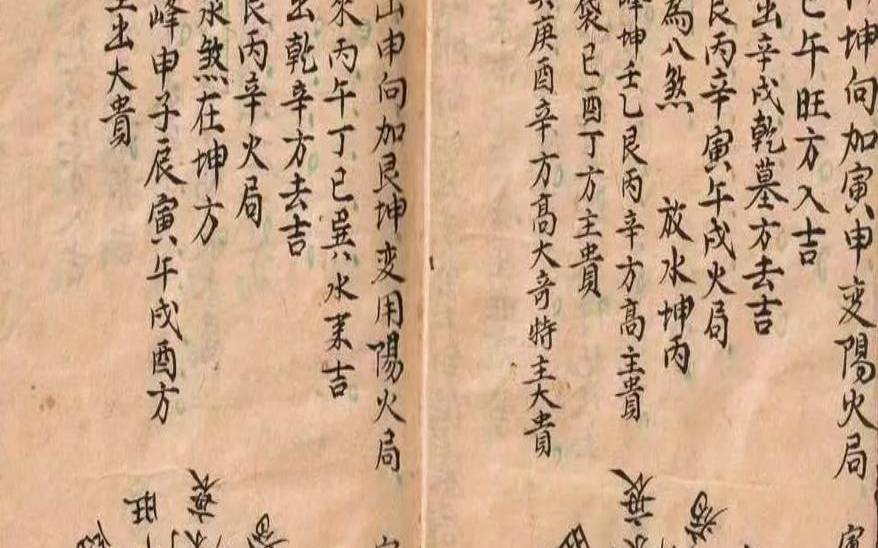 坤向加寅申变陽火局
巳午旺方入吉
出辛戌乾墓方去吉
艮丙辛寅午戌火局
為八煞　放水坤丙
峰坤壬乙艮丙辛方高主貴
袋巳酉丁方主貴
庚酉辛方高大奇特主大貴
衰
山申向加艮坤变用陽火局
來丙午丁巳巽水来吉
出乾辛方去吉
艮丙辛火局
水煞在坤方
峰申子辰寅午戌酉方
主出大貴
衰
旺